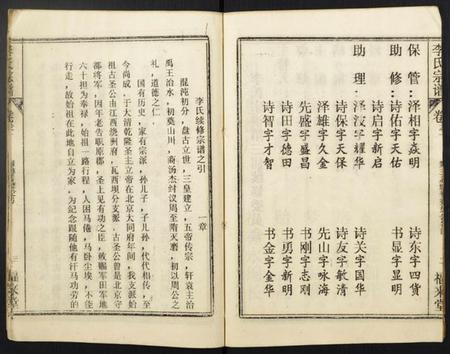 李氏宗谱
卷三
福来堂
保管：泽相字焱明
诗东字四货
助修：诗佑字天佑
书显字显明
诗启字新启
助理：泽汶字耀华
诗关字国华
诗保字天保
诗友字敏清
泽雄字久金
先山字咏海
先盛字盛昌
书刚字志刚
诗田字德田
书勇字新明
诗智字才智
书金字金华
李氏续修宗谱之引
一章
混沌初分，盘古立世，三皇建立，五帝传宗，轩袁主治
禹王治水，初奠山川，商汤杰纣议周至隋灭磨，初以周公之
礼，道德之仁
国有历史，家有宗派，孙儿子，子儿孙，代代相传，至
今尚成，于大清乾隆圣主立帝在北京大同府年间，我支派始
祖古圣公由江西绕洲府，瓦西坝分支派，古圣公曾是北京守
都将军，因年老告职原郡，圣上见有功之臣，敕赐军田军地
六十担为奉禄，始祖一路行程，人困马倦，马卧尘埃，不能
行走，故始祖在此地自立为家，为纪念跟随他有汗马功劳的